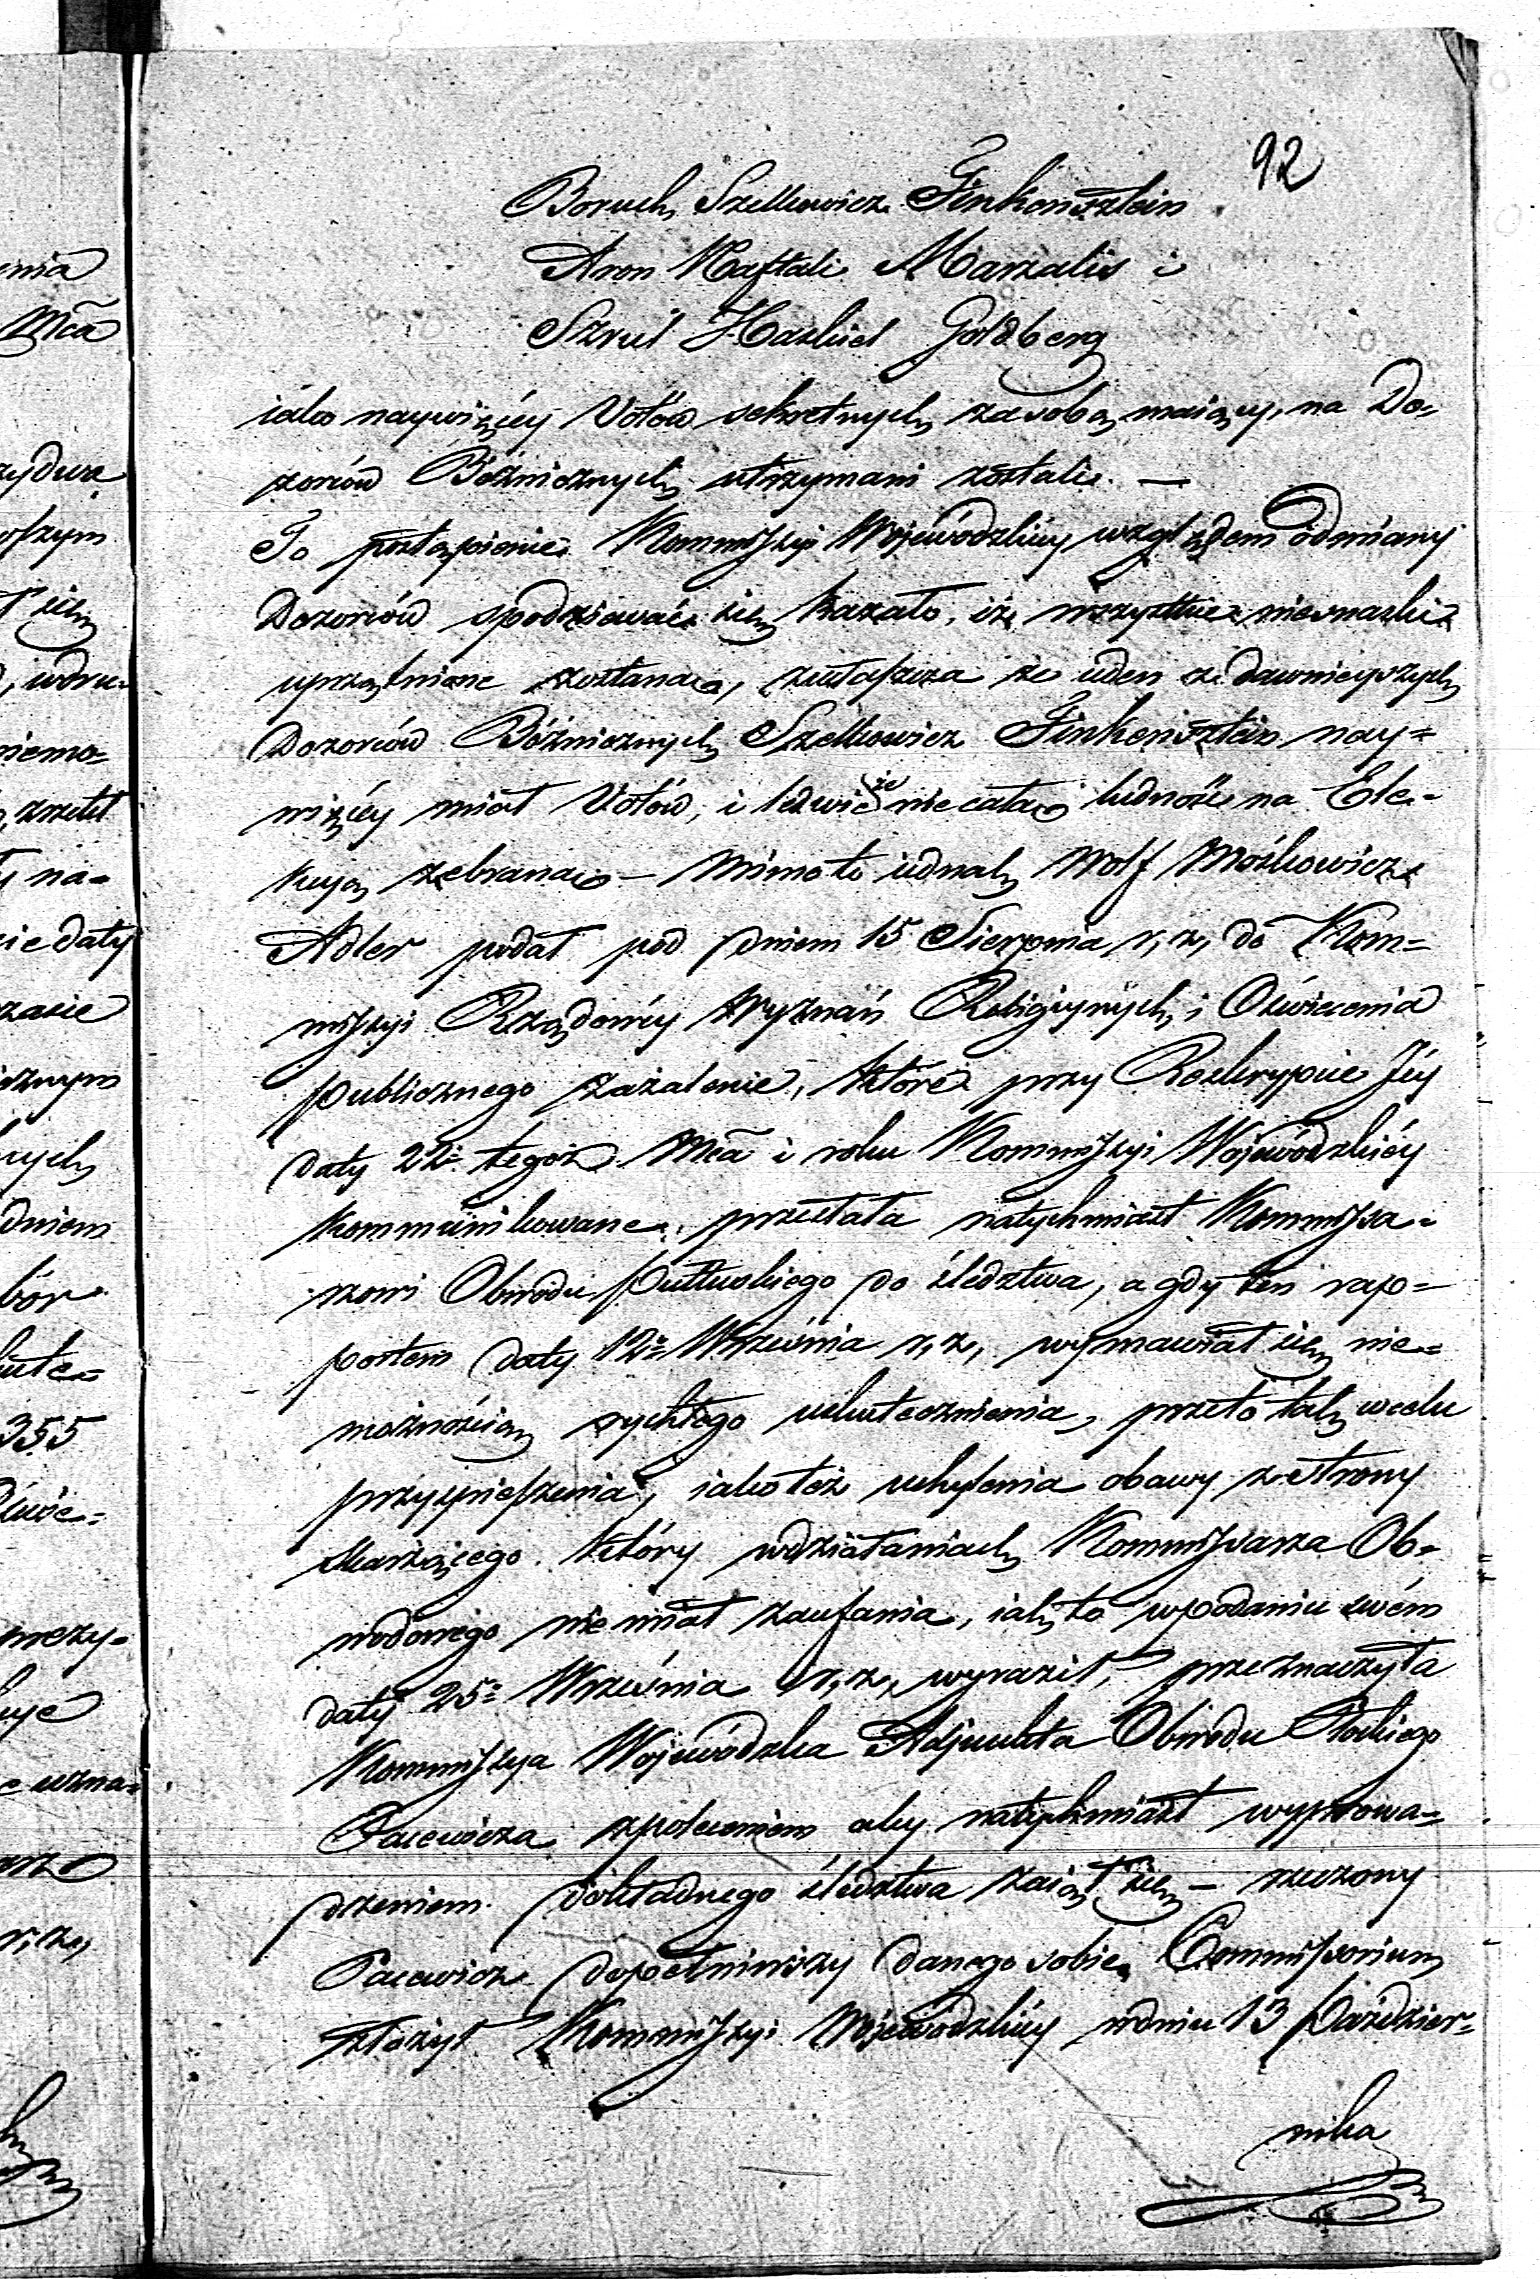 92
Boruch Szelkowicz Finkensztein
Aron Naftali Marzalis i
Szrul Haskiel Goldberg
iako naywięcéy Votów sekretnych za sobą maiący, na Do=
zorców Bóżnicznych utrzymani zostali. —
To postąpienie Kommissyi Wojewódzkiéy względem odmiany
Dozorców spodziewać się kazało, iż wszystkie niesnaski
uprzątnione zostaną, zwłaszcza że ieden z dawnieyszych
Dozorców Bóżnicznych Szelkowicz Finkensztein nay=
więcéy miał Votów, i ledwie że nie całą ludność na Ele=
kcyą zebraną — Mimo to iednak Wolf Mośkowicz
Adler podał pod dniem 15 Sierpnia r. z. do Kom=
missyi Rządowéy Wyznań Religiynych i Oświecenia
publicznego zażalenie, które przy Reskrypcie Jéy
daty 22. tegoż Mca i roku Kommissyi Wojewódzkiéy
kommunikowane, przesłała natychmiast Kommissa=
rzowi Obwodu Pułtuskiego do śledztwa, a gdy ten rap=
portem daty 12. Września r. z. wymawiał się nie=
możnością rychłego uskutecznienia, przeto tak w celu
przyspieszenia, iako też uchylenia obawy ze strony
skarżącego, który w działaniach Kommissarza Ob=
wodowego nie miał zaufania, iak to w podaniu swém
daty 25. Września r. z. wyraził, przeznaczyła
Kommissya Wojewódzka Adjunkta Obwodu Płockiego
Pacewicza z poleceniem aby natychmiast wyprowa=
dzeniem dokładnego śledztwa zaiął się — rzeczony
Pacewicz dopełniwszy danego sobie Commissorium
złożył Kommissyi Wojewódzkiéy w dniu 13 Paździer=
nika